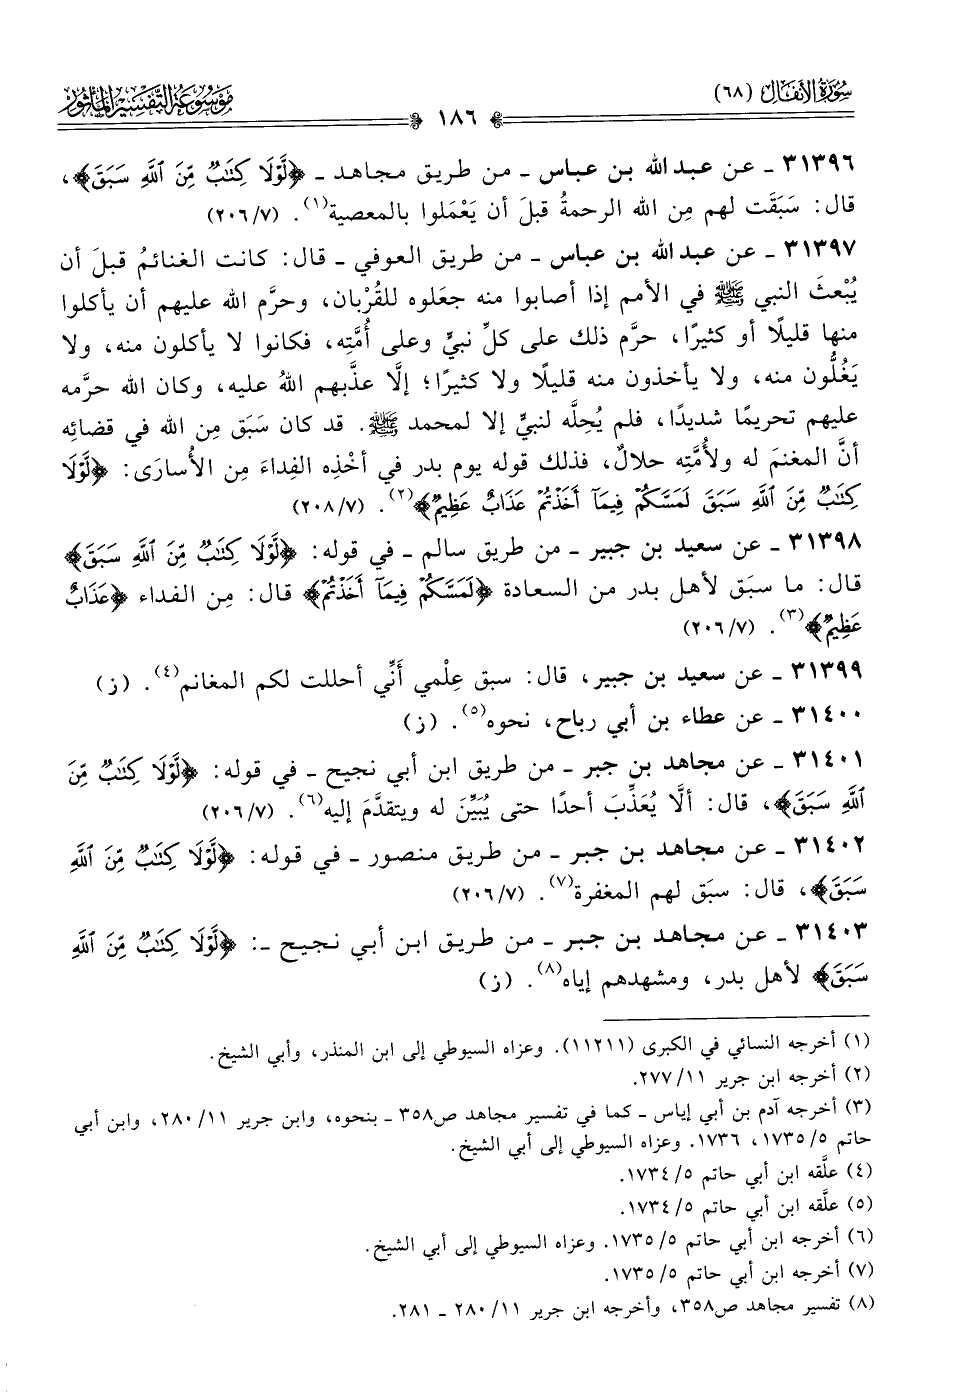 سُورَةُ الأَنفَال (٦٨)
١٨٦
مَوْسُوعَةُ التَّفْسِيرِ المَأْثُور
٣١٣٩٦ ـ عن عبد الله بن عباس ـ من طريق مجاهد ـ ﴿لَّوْلَا كِتَٰبٌ مِّنَ ٱللَّهِ سَبَقَ﴾،
قال: سَبَقَت لهم مِن الله الرحمةُ قبلَ أن يَعْمَلوا بالمعصية(١). (٢٠٦/٧)
٣١٣٩٧ ـ عن عبد الله بن عباس ـ من طريق العوفي ـ قال: كانت الغنائمُ قبلَ أن
يُبْعثَ النبي ﷺ في الأمم إذا أصابوا منه جعَلوه للقُرْبان، وحرَّم الله عليهم أن يأكلوا
منها قليلًا أو كثيرًا، حرَّم ذلك على كلِّ نبيٍّ وعلى أُمَّتِه، فكانوا لا يأكلون منه، ولا
يَغُلُّون منه، ولا يأخذون منه قليلًا ولا كثيرًا؛ إلَّا عذَّبهم اللهُ عليه، وكان الله حرَّمه
عليهم تحريمًا شديدًا، فلم يُحِلَّه لنبيٍّ إلا لمحمد ﷺ. قد كان سَبَق مِن الله في قضائِه
أنَّ المغنمَ له ولأُمَّتِه حلالٌ، فذلك قوله يوم بدر في أخْذِه الفِداءَ مِن الأُسارَى: ﴿لَّوْلَا
كِتَٰبٌ مِّنَ ٱللَّهِ سَبَقَ لَمَسَّكُمْ فِيمَآ أَخَذْتُمْ عَذَابٌ عَظِيمٌ﴾(٢). (٢٠٨/٧)
٣١٣٩٨ ـ عن سعيد بن جبير ـ من طريق سالم ـ في قوله: ﴿لَّوْلَا كِتَٰبٌ مِّنَ ٱللَّهِ سَبَقَ﴾
قال: ما سبَق لأهل بدر من السعادة ﴿لَمَسَّكُمْ فِيمَآ أَخَذْتُمْ﴾ قال: مِن الفداء ﴿عَذَابٌ
عَظِيمٌ﴾(٣). (٢٠٦/٧)
٣١٣٩٩ ـ عن سعيد بن جبير، قال: سبق عِلْمي أَنِّي أحللت لكم المغانم(٤). (ز)
٣١٤٠٠ ـ عن عطاء بن أبي رباح، نحوه(٥). (ز)
٣١٤٠١ ـ عن مجاهد بن جبر ـ من طريق ابن أبي نجيح ـ في قوله: ﴿لَّوْلَا كِتَٰبٌ مِّنَ
ٱللَّهِ سَبَقَ﴾، قال: ألَّا يُعَذِّبَ أحدًا حتى يُبَيِّنَ له ويتقدَّمَ إليه(٦). (٢٠٦/٧)
٣١٤٠٢ ـ عن مجاهد بن جبر ـ من طريق منصور ـ في قوله: ﴿لَّوْلَا كِتَٰبٌ مِّنَ ٱللَّهِ
سَبَقَ﴾، قال: سبَق لهم المغفرة(٧). (٢٠٦/٧)
٣١٤٠٣ ـ عن مجاهد بن جبر ـ من طريق ابن أبي نجيح ـ: ﴿لَّوْلَا كِتَٰبٌ مِّنَ ٱللَّهِ
سَبَقَ﴾ لأهل بدر، ومشهدهم إياه(٨). (ز)
(١) أخرجه النسائي في الكبرى (١١٢١١). وعزاه السيوطي إلى ابن المنذر، وأبي الشيخ.
(٢) أخرجه ابن جرير ٢٧٧/١١.
(٣) أخرجه آدم بن أبي إياس ـ كما في تفسير مجاهد ص٣٥٨ ـ بنحوه، وابن جرير ٢٨٠/١١، وابن أبي
حاتم ١٧٣٥/٥، ١٧٣٦. وعزاه السيوطي إلى أبي الشيخ.
(٤) علَّقه ابن أبي حاتم ١٧٣٤/٥.
(٥) علَّقه ابن أبي حاتم ١٧٣٤/٥.
(٦) أخرجه ابن أبي حاتم ١٧٣٥/٥. وعزاه السيوطي إلى أبي الشيخ.
(٧) أخرجه ابن أبي حاتم ١٧٣٥/٥.
(٨) تفسير مجاهد ص٣٥٨، وأخرجه ابن جرير ٢٨٠/١١ ـ ٢٨١.